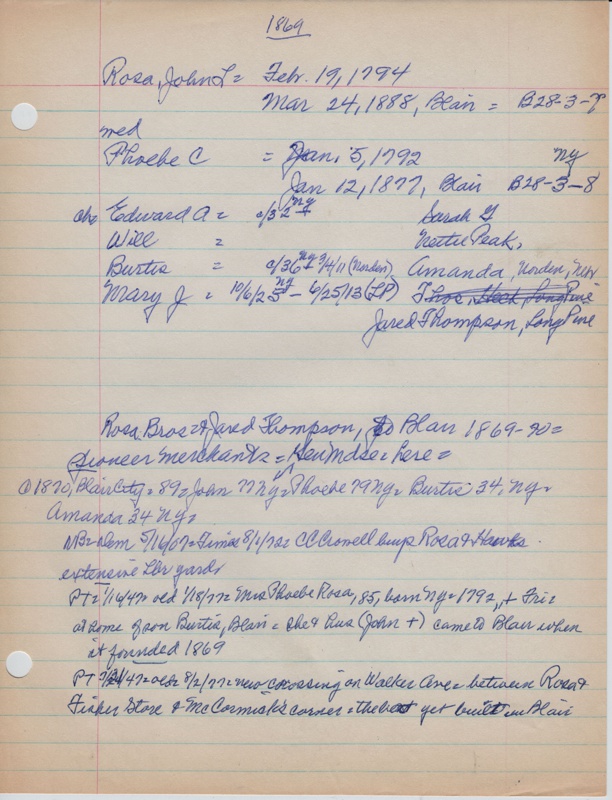 1869
Rosa, John L = Feb. 19, 1794
Mar 24, 1888, Blair = B28-3-7
med
Phoebe C = Jan. 5, 1792 ny
Jan 12, 1877, Blair B28-3-8
chr Edward A = c/32 ny + Sarah Y
Will = Nettie Peak,
Burtis = c/36 ny - 3/4/11 (Norden), Amanda, Norden, Nebr
Mary J = 10/6/25 ny - 6/25/13 (LP) Thos. Heck, Long Pine
Jared Thompson, Long Pine
Rosa Bros & Jared Thompson, to Blair 1869-70 =
pioneer merchants = Gen mdse here =
@ 1870, Blair City = 89 = John 77 ny = Phoebe 79 ny = Burtis 34, ny =
Amanda 34 ny =
NB = Dem 5/16/07 = Times 8/1/72 = CC Crowell buys Rosa & Hawks
extensive lbr yards
PT = 1/16/47 = old 1/18/77 = Mrs Phoebe Rosa, 85, born ny = 1792, + Fri =
at home of son Burtis, Blair = she & hus (John +) came to Blair when
it founded 1869
PT = 7/31/47 = old = 8/2/77 = new crossing on Walker Ave = between Rosa &
Fisher Store & McCormick's corner = the best yet built in Blair